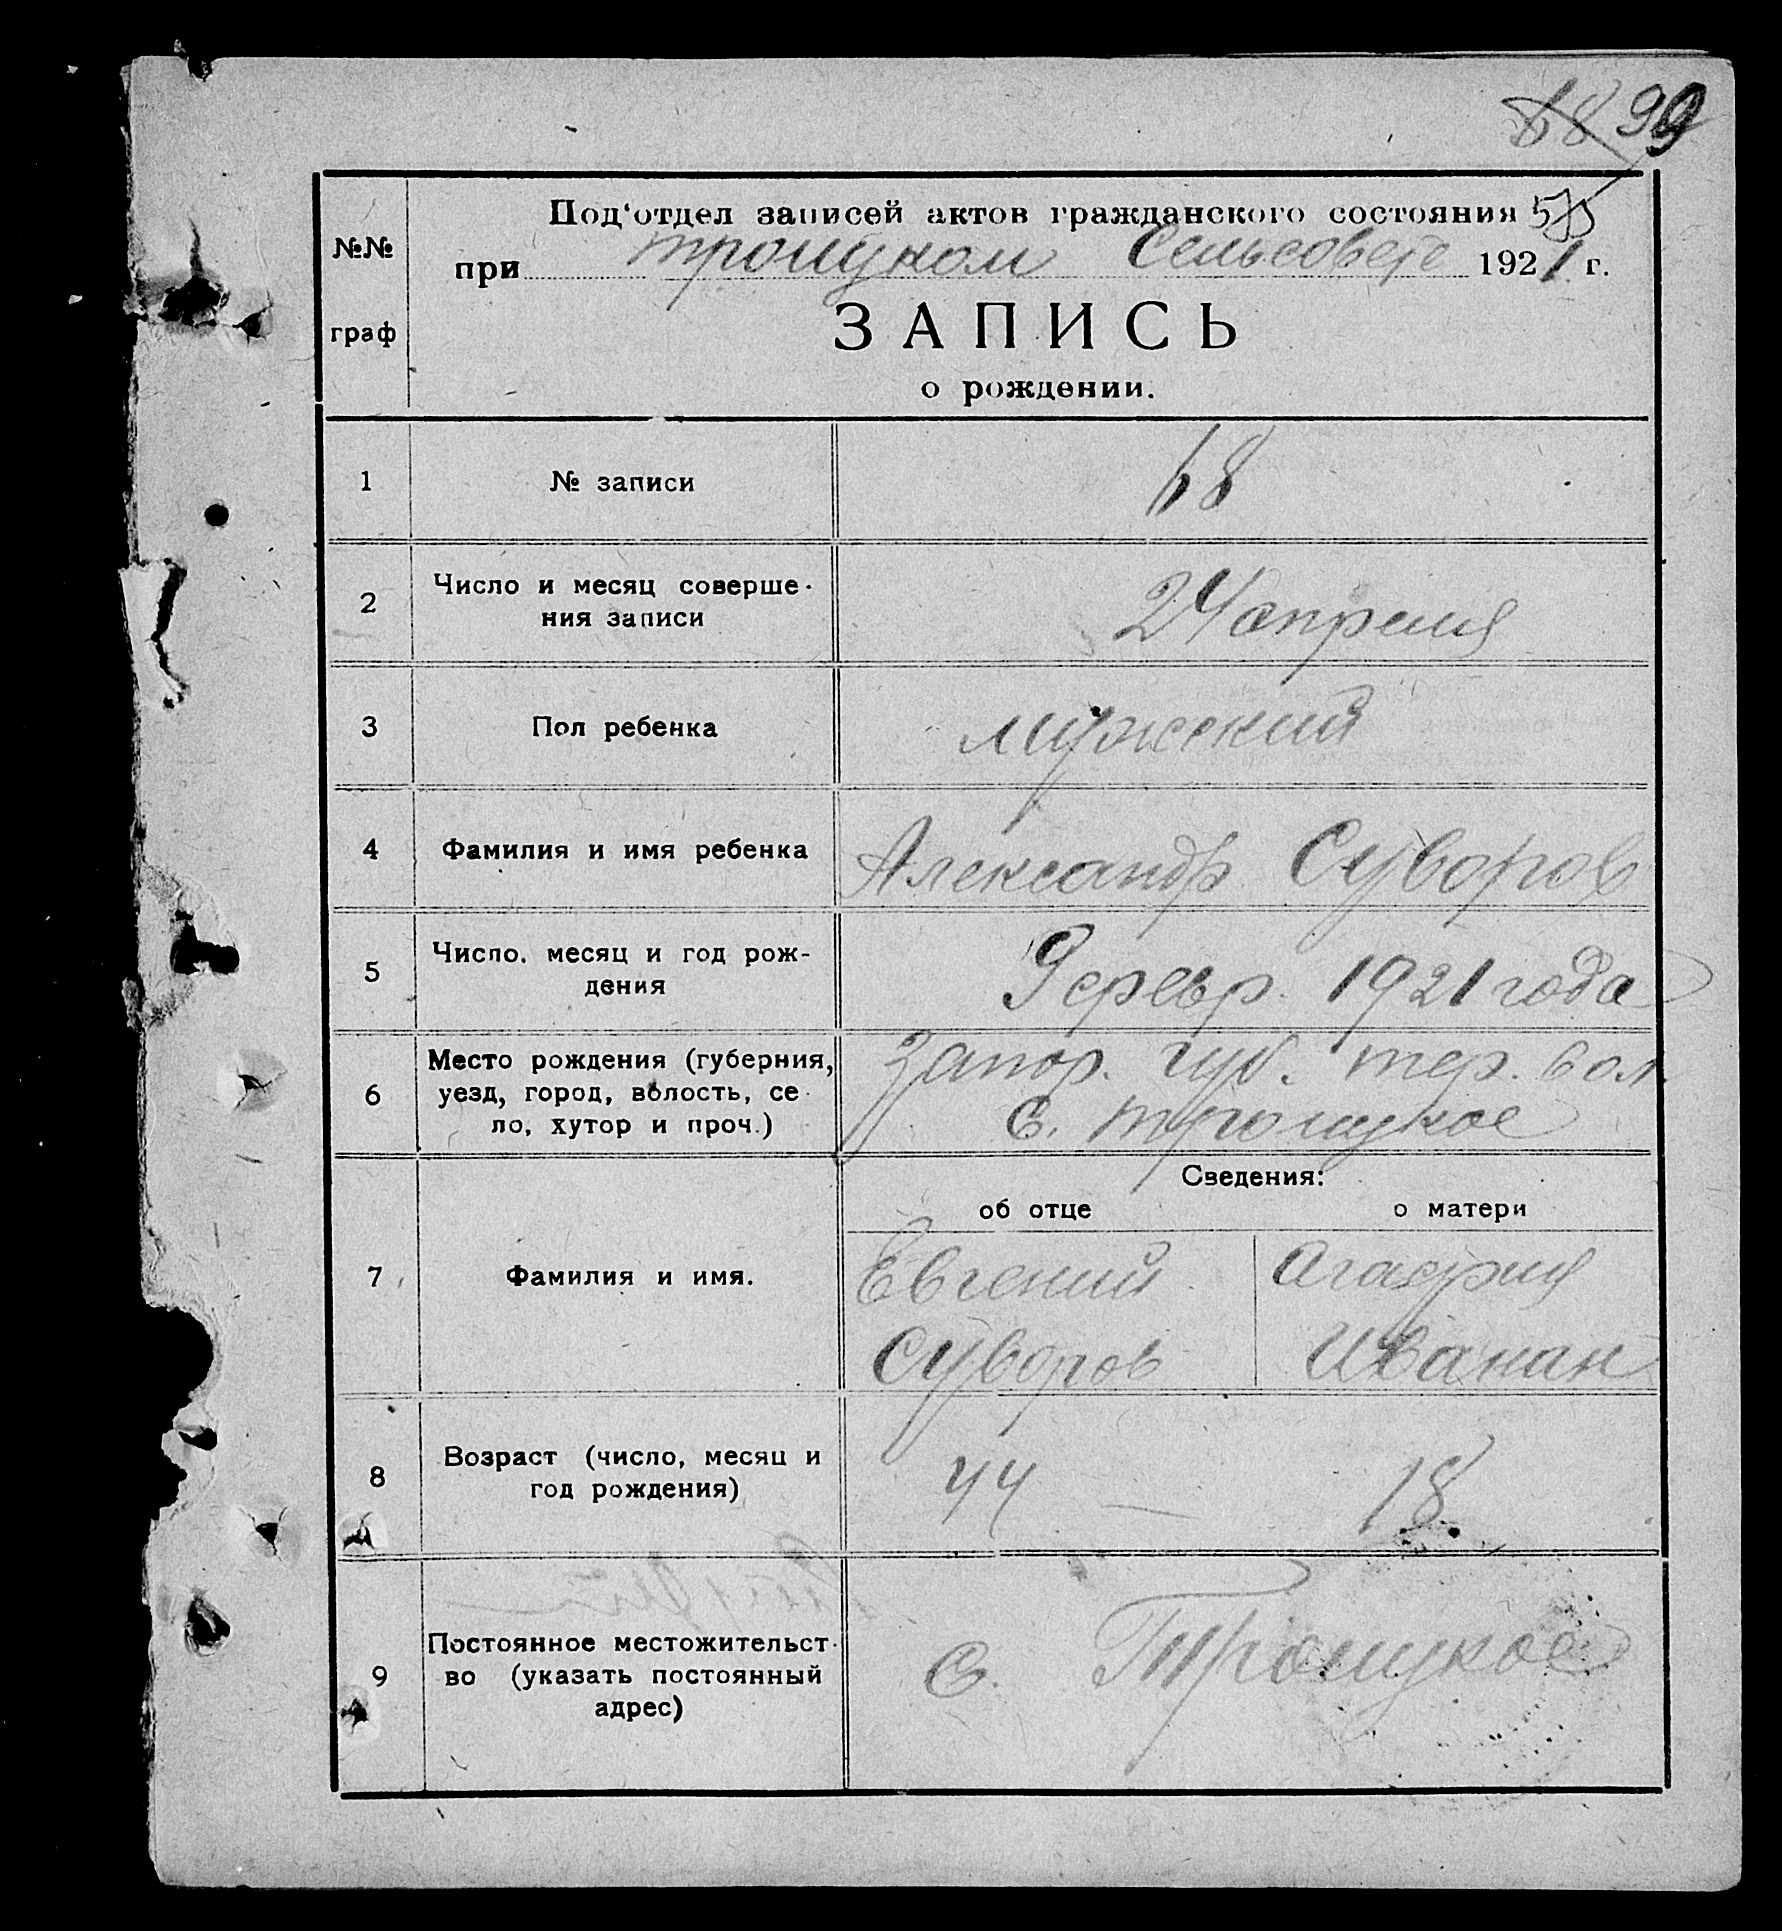 68 99
Под‘отдел записей актов гражданского состояния 55
№№
при троицком Сельсовете 1921 г.
граф
ЗАПИСЬ
о рождении.
1 № записи 68
2 Число и месяц соверше-
ния записи 24 апреля
3 Пол ребенка мужский
4 Фамилия и имя ребенка Александр Суворов
5 Число, месяц и год рож-
дения 9 февр. 1921 года
6 Место рождения (губерния,
уезд, город, волость, се-
ло, хутор и проч.)
Запор. губ. тер. вол.
с. троицкое
Сведения:
об отце о матери
7 Фамилия и имя.
Евгений Агафия
Суворов Иванан
8 Возраст (число, месяц и
год рождения) 44 — 18.
9 Постоянное местожительст-
во (указать постоянный
адрес) с. Троицкое